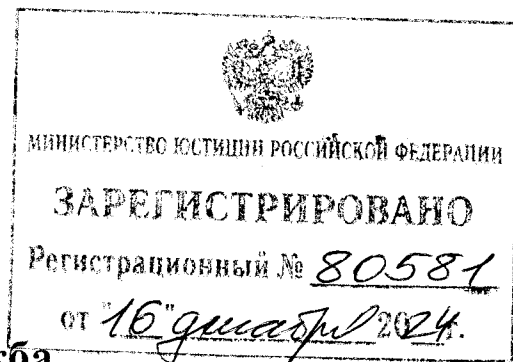 МИНИСТЕРСТВО ЮСТИЦИИ РОССИЙСКОЙ ФЕДЕРАЦИИ
ЗАРЕГИСТРИРОВАНО
Регистрационный № 80581
от "16" декабря 2024г.